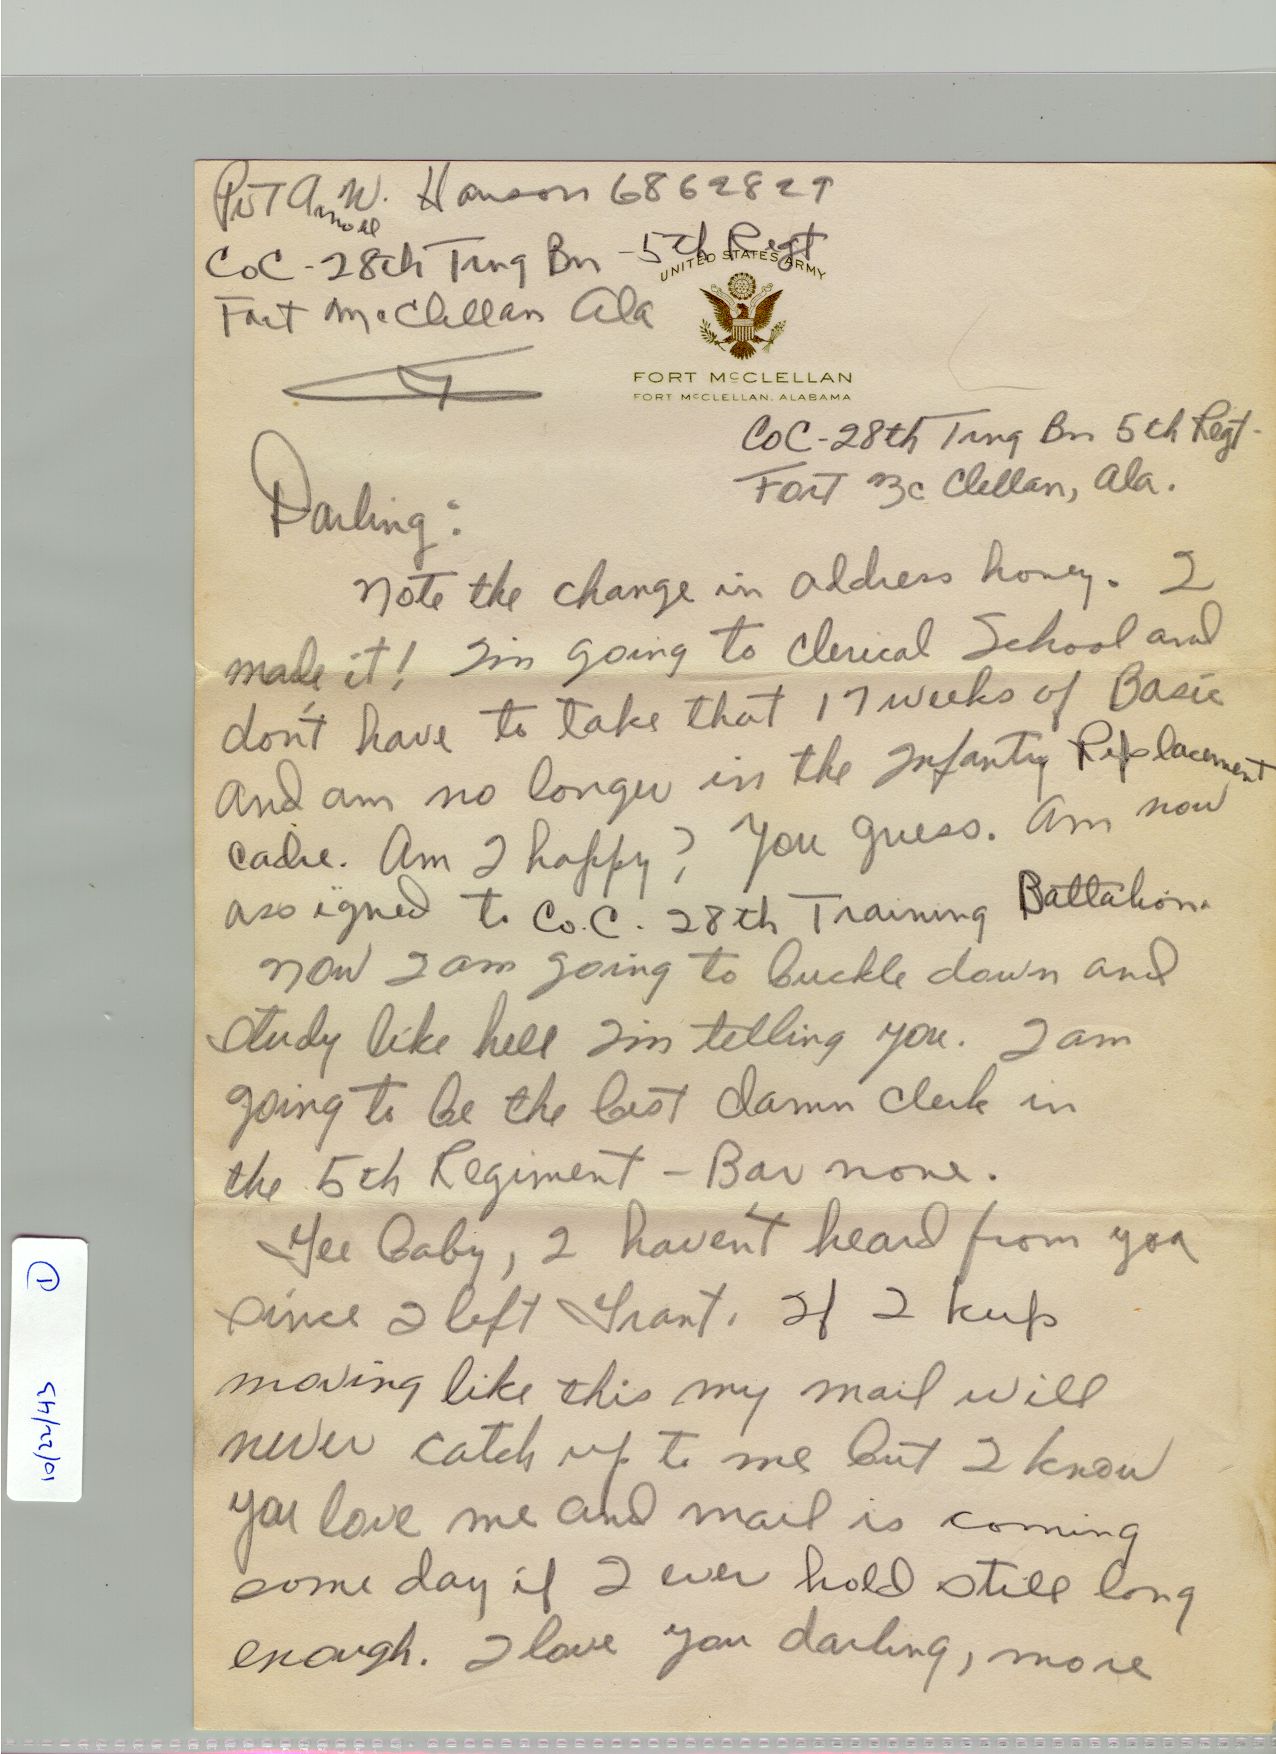 Pvt A. W. Hanson 6862829
Arnold
Co C - 28th Trng Bn - 5th Regt
Fort McClellan Ala
UNITED STATES ARMY
FORT McCLELLAN
FORT McCLELLAN, ALABAMA
Co C - 28th Trng Bn 5th Regt -
Fort Mc Clellan, Ala.
Darling:
Note the change in address honey. I
made it! Im going to Clerical School and
don't have to take that 17 weeks of Basic
and am no longer in the Infantry Replacement
cadre. Am I happy? You guess. Am now
assigned to Co. C. 28th Training Battalion.
Now I am going to buckle down and
study like hell Im telling you. I am
going to be the best damn clerk in
the 5th Regiment - Bar none.
Gee baby, I haven't heard from you
since I left Grant. If I keep
moving like this my mail will
never catch up to me but I know
you love me and mail is coming
some day if I ever hold still long
enough. I love you darling, more
1
10/22/45